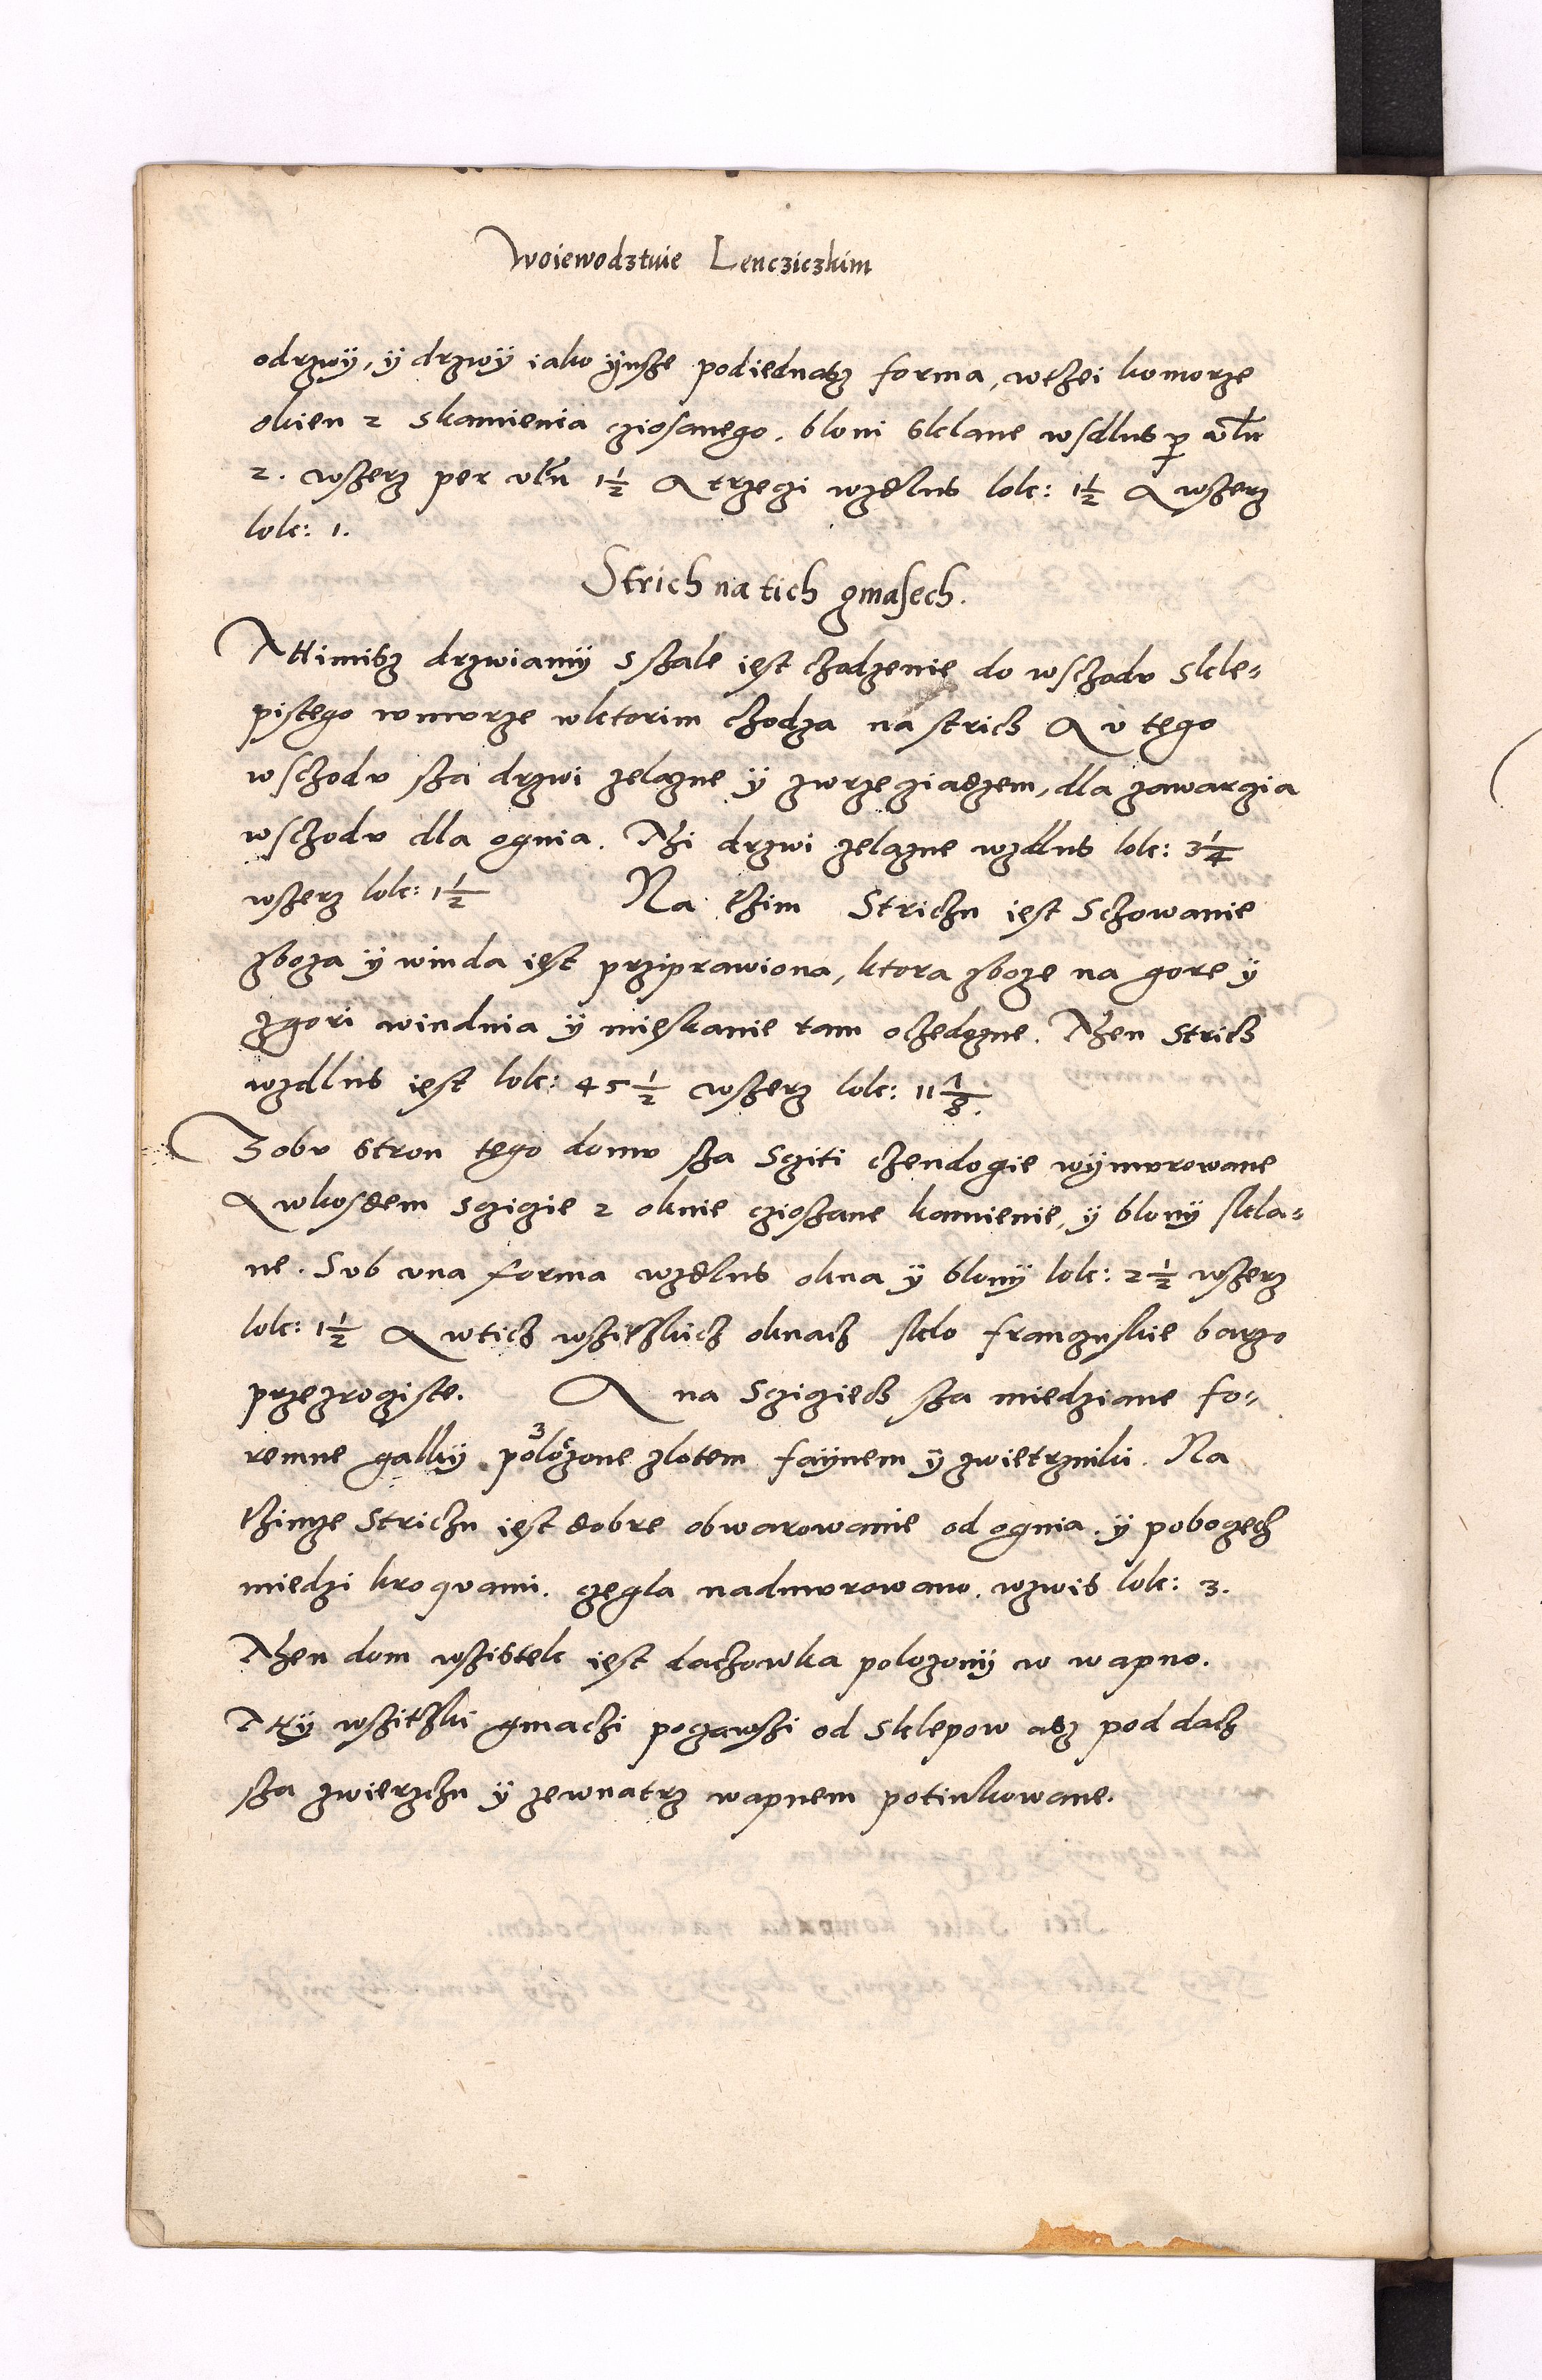 Woiewodztwie Lencziczkim
odrzwÿ, ÿ drzwÿ iako ÿnsze podiednasz forma, wthei komorze
okien 2 skamienia cziosanego, bloni sklane wsdlus per vln
2. wszerz per vln 1½ A trzeczi wzdlus lok: 1½ A wszerz
lok: 1.
Strich na tich gmasech.
A timisz drzwiamÿ s szale iest chodzenie do wschodu skle-
pistego wmurze wktorim chodza na strich A v tego
wschodu sza drzwi zelazne ÿ zwrzecziadzem, dla zawarczia
wschodu dla ognia. Thi drzwi zelazne wzdlus lok: 3¼
wszerz lok: 1½ Na thim Strichu iest Schowanie
zboza ÿ winda iest prziprawiona, ktora zboze na gore ÿ
zgori windnia ÿ mieskanie tam ochedzne. Then strich
wzdlus iest lok: 45½ wszerz lok: 11⅓.
Z obu stron tego domu sza Scziti chendogie wÿmurowane
A wkosdem Sczicie 2 oknie cziosane kamienie, ÿ blonÿ skla-
ne. Sub una forma wzdlus okna ÿ blonÿ lok: 2½ wszerz
lok: 1½ A wtich wszithkich oknach sklo franczuskie barzo
przezrociste. A na Scziciech sza miedziane fo-
remne galkÿ 3 polozone zlotem faÿnem ÿ zwietrzniki. Na
thimze Strichu iest dobre obwarowanie od ognia. ÿ pobocech
miedzi kroqvami. czegla nadmurowano. wzwis lok: 3.
Then dom wszistek iest dachowka polozonÿ w wapno.
A tÿ wszithki gmachi poczawszi od Sklepow asz pod dach
sza zwierzchu ÿ zewnatrz wapnem potinkowane.